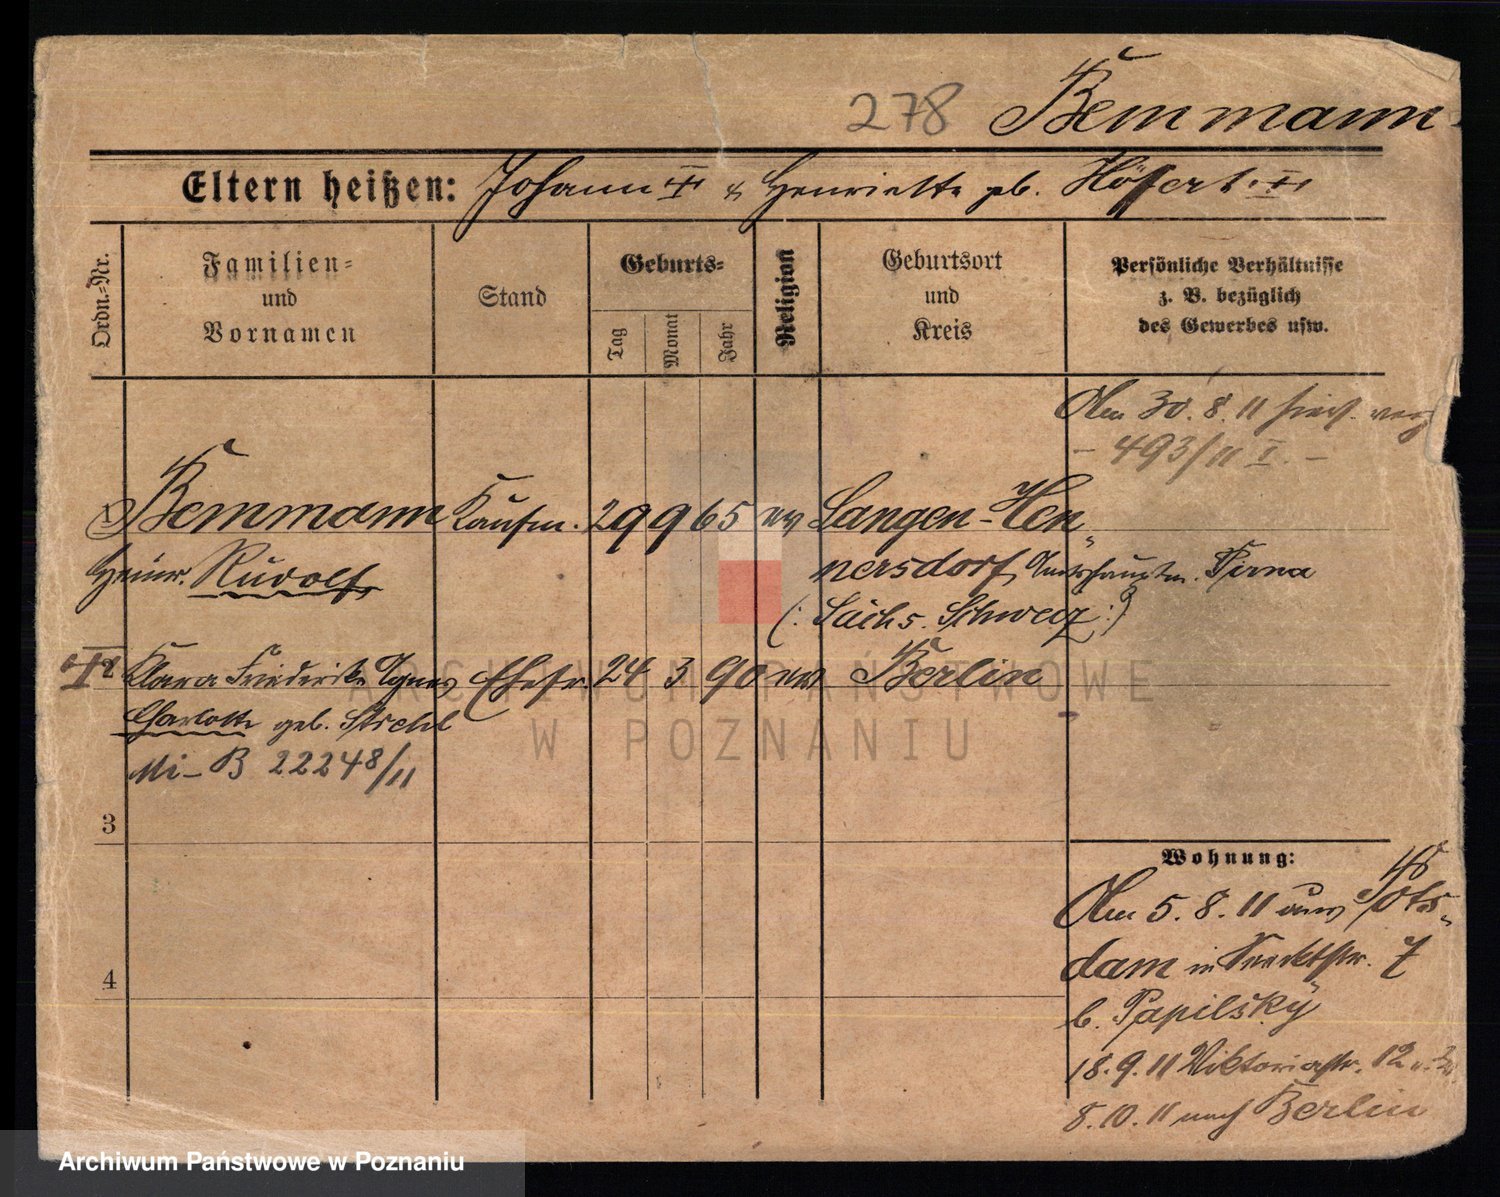 278 Bemmann
Eltern heißen: Johann & Henriette geb.
Ordn.-Nr.
Familien-
und
Vornamen
Stand
Geburts-
Tag
Monat
Jahr
Religion
Geburtsort
und
Kreis
Persönliche Verhältnisse
z. B. bezüglich
des Gewerbes usw.
Am 30.8.11 hies.
- 493/11 I. -
1 Bemmann Kaufm. 29 9 65 ev Langen-Hen-
Heinr. Rudolf nersdorf, Amtshauptm. Pirna
(: Sächs. Schweiz :)
2 Klara Friederike Agnes Ehefr. 24 3 90 ev Berlin
Charlotte geb. Strehl
Mi- B 22248/11
3
4
Wohnung:
Am 5.8.11 aus Pots-
dam in 7
b. Papilsky
18.9.11 Viktoriastr. 12
8.10.11 nach Berlin
ARCHIWUM PAŃSTWOWE
W POZNANIU
Archiwum Państwowe w Poznaniu